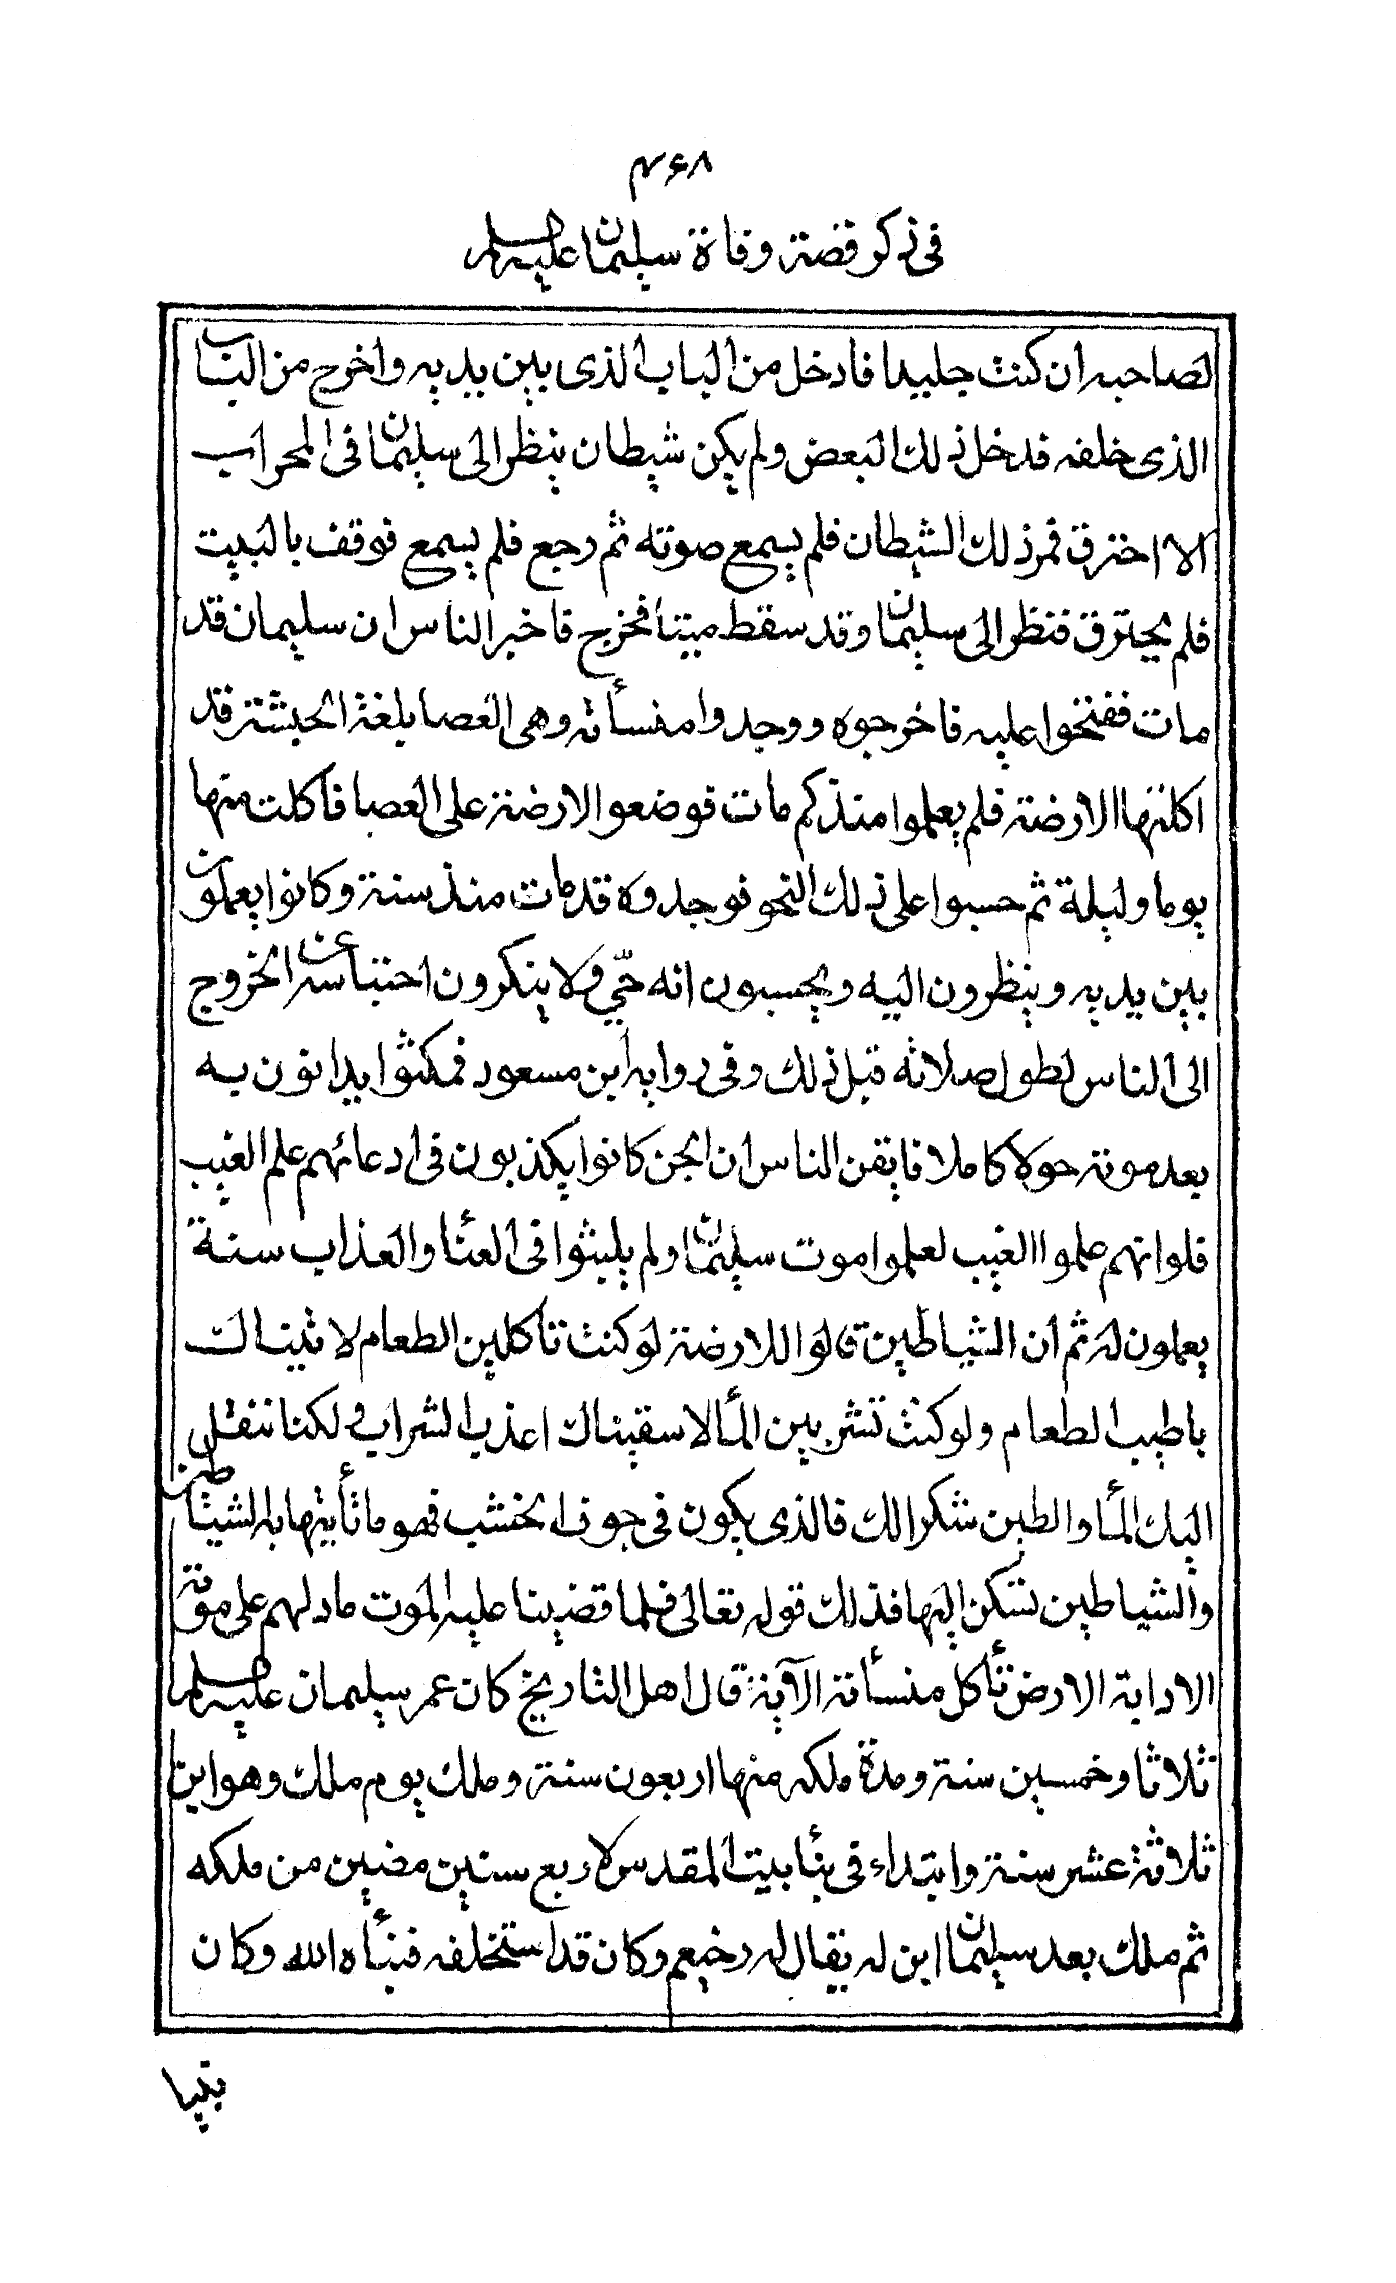 ۴۶۸
فى ذكر قصة وفاة سليمان عليه السلم
لصاحبه ان كنت جليدا فادخل من الباب الذى بين يديه واخرج من الباب
الذى خلفه فدخل ذلك البعض ولم يكن شيطان ينظر الى سليمان فى المحراب
الا احترق فمر ذلك الشيطان فلم يسمع صوته ثم رجع فلم يسمع فوقف بالبيت
فلم يحترق فنظر الى سليمان وقد سقط ميتا فخرج فاخبر الناس ان سليمان قد
مات ففتحوا عليه فاخرجوه ووجدوا منسأته وهى العصا بلغة الحبشة قد
اكلتها الارضة فلم يعلموا منذكم مات فوضعوا الارضة على العصا فأكلت منها
يوما وليلة ثم حسبوا على ذلك النحو فوجدوه قد مات منذ سنة وكانوا يعملون
بين يديه وينظرون اليه ويحسبون انه حيّ ولا ينكرون احتباسه عن الخروج
الى الناس لطول صلاته قبل ذلك وفى رواية ابن مسعود فمكثوا يدانون به
بعد موته حولا كاملا فايقن الناس ان الجن كانوا يكذبون فى ادعائهم علم الغيب
فلو انهم علموا الغيب لعلموا موت سليمان ولم يلبثوا فى العنأ والعذاب سنة
يعملون له ثم ان الشياطين قالوا للارضة لو كنت تأكلين الطعام لاتيناك
باطيب الطعام ولو كنت تشربين المأ لاسقيناك اعذب الشراب ولكنا ننقل
اليك المأ والطين شكرا لك فالذى يكون فى جوف الخشب فهو ما تأتيها به الشياطين
والشياطين تشكن اليها فذلك قوله تعالى فلما قضينا عليه الموت ما دلهم على موته
الا دابة الارض تأكل منسأته الآية قال اهل التاريخ كان عمر سليمان عليه السلم
ثلاثا وخمسين سنة ومدة ملكه منها اربعون سنة وملك يوم ملك وهو ابن
ثلاثة عشر سنة وابتداء فى بنأ بيت المقدس لاربع سنين مضين من ملكه
ثم ملك بعد سليمان ابن له يقال له رخيعم وكان قد استخلفه فنبأه الله وكان
نبيا